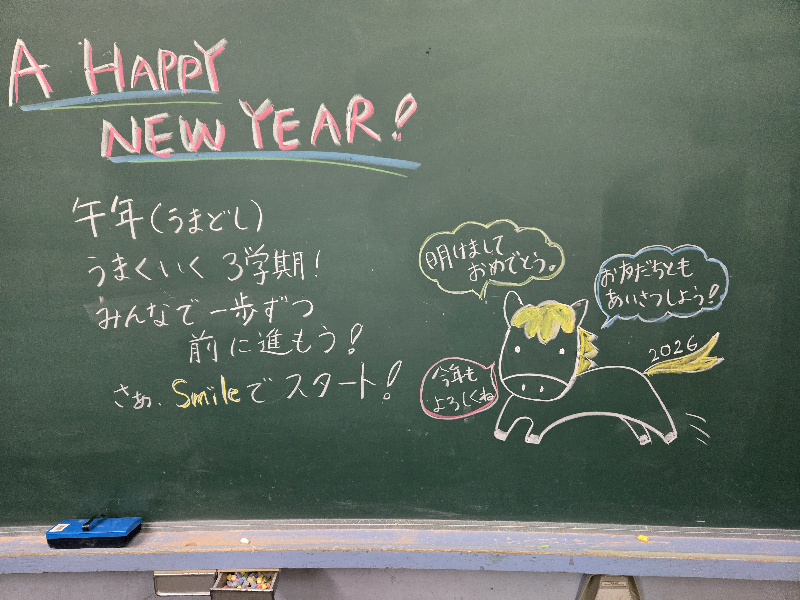 A HAPPY
NEW YEAR!
午年(うまどし)
うまくいく 3学期!
みんなで一歩ずつ
前に進もう!
さぁ、Smileで スタート!
明けまして
おめでとう。
お友だちとも
あいさつしよう!
今年も
よろしくね
2026